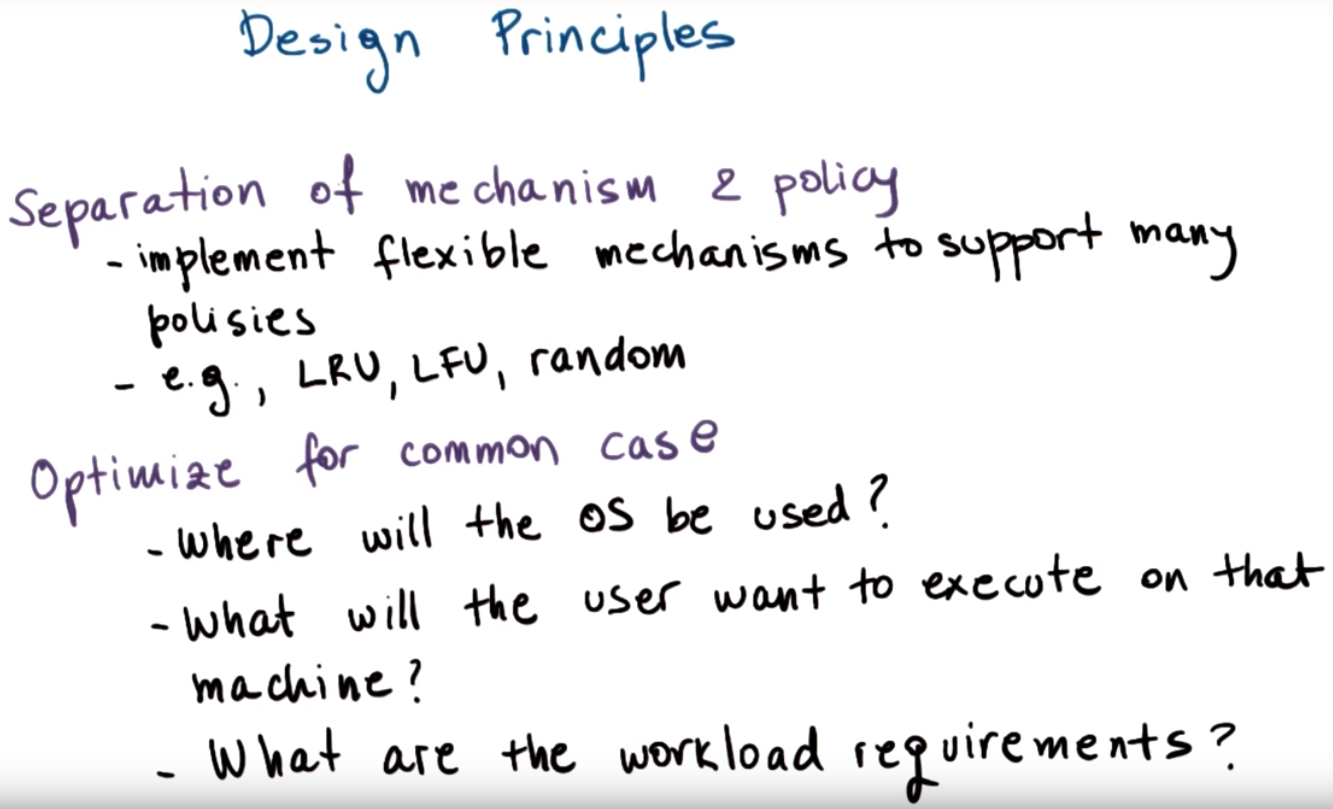 Design Principles
Separation of mechanism & policy
- implement flexible mechanisms to support many
polisies
- e.g., LRU, LFU, random
Optimize for common case
- Where will the OS be used?
- What will the user want to execute on that
machine?
- What are the workload requirements?